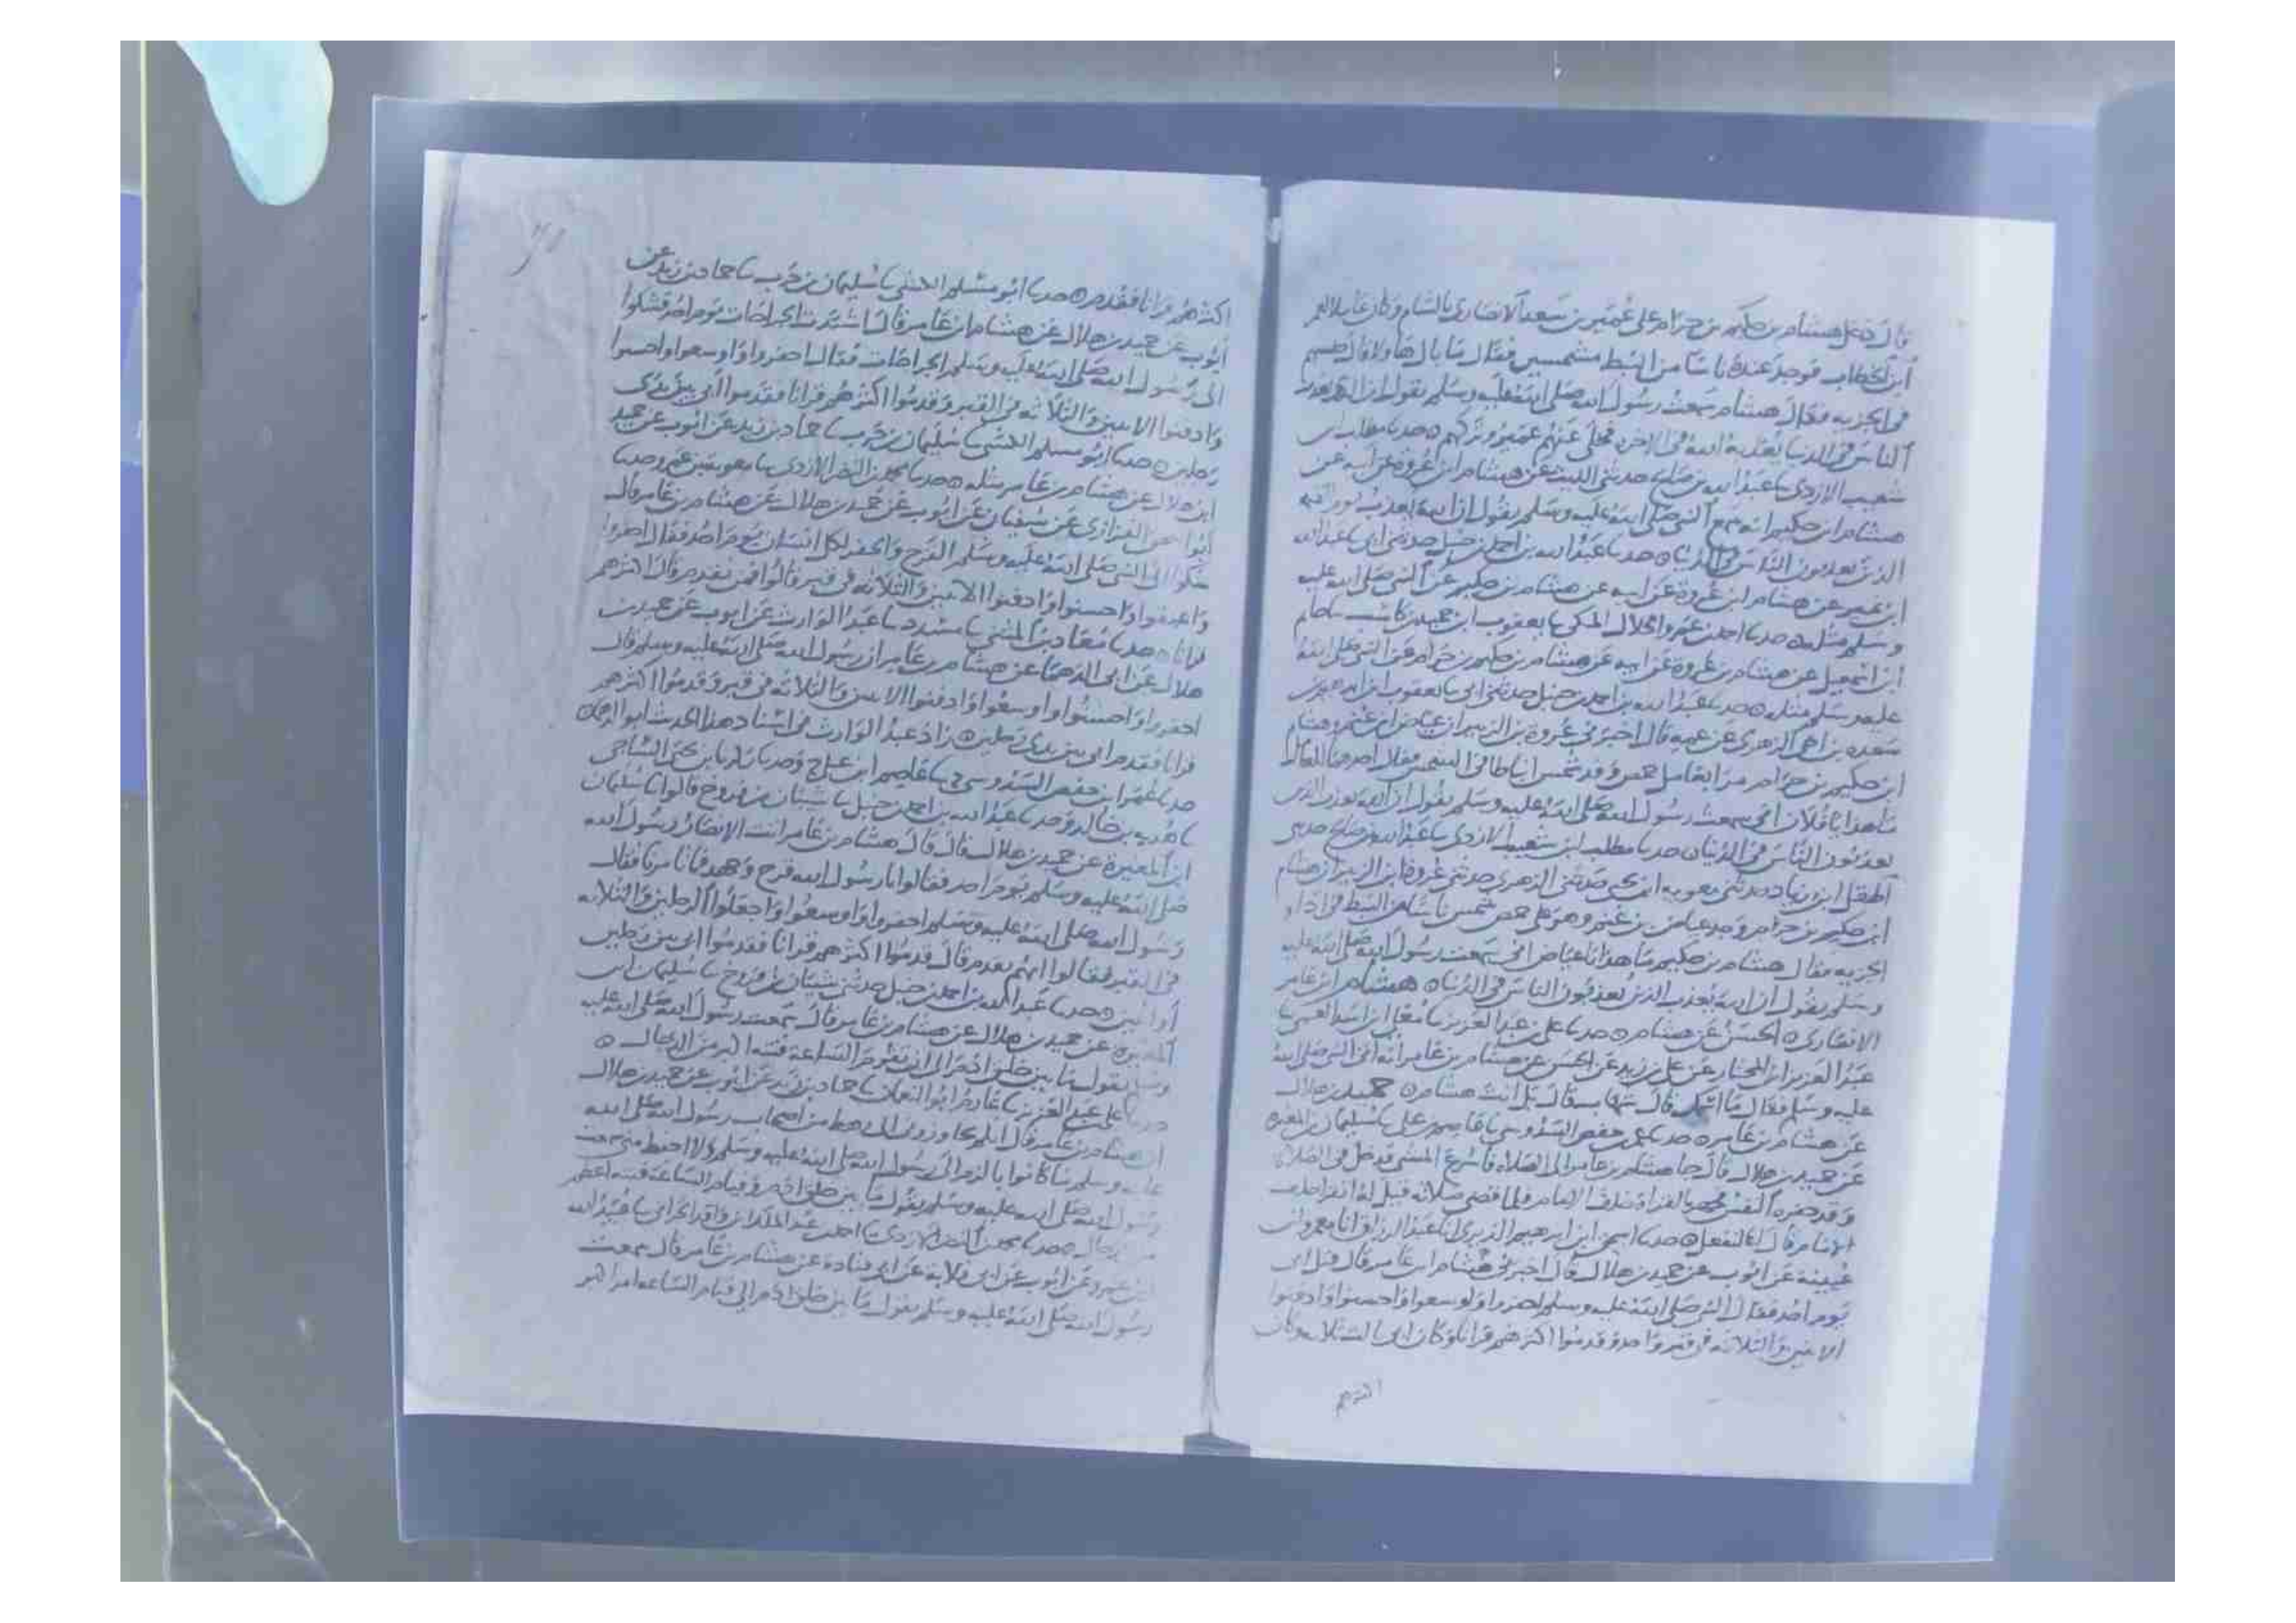 قال دخل هشام بن حكيم بن حزام على عمير بن سعد الانصارى بالشام وكان عاملا لعمر
ابن الخطاب فوجد عنده ناسا من النبط مشمسين فقال ما بال هاولا قال حبسهم
فى الجزيه فقال هشام سمعت رسول الله صلى الله عليه وسلم يقول ان الذى يعذب
الناس فى الدنيا يعذبه الله فى الاخره فخلى عنهم عمير وتركهم ه حدثنا مطلب بن
شعيب الازدى نا عبد الله بن صالح حدثنى الليث عن هشام ابن عروة عن ابيه عن
هشام ابن حكيم انه سمع النبى صلى الله عليه وسلم يقول ان الله يعذب يوم القيمه
الذين يعذبون الناس فى الدنيا ه حدثنا عبد الله بن احمد بن حنبل حدثنى ابى نا عبد الله
ابن نمير عن هشام ابن عروة عن ابيه عن هشام بن حكيم عن النبى صلى الله عليه
وسلم مثله ه حدثنا احمد بن عمرو الخلال المكى نا يعقوب ابن حميد بن كاسب نا حاتم
ابن اسمعيل عن هشام بن عروة عن ابيه عن هشام بن حكيم بن حزام عن النبى صلى الله
عليه وسلم مثله ه حدثنا عبد الله بن احمد بن حنبل حدثنى ابى نا يعقوب ابن ابرهيم بن
سعد نا بن اخى الزهرى عن عمه قال اخبرنى عروة بن الزبير ان عياض ابن غنم وهشام
ابن حكيم بن حزام مرا بعامل حمص وقد شمس انباطا فى الشمس فقال احدهما للعامل
ما هذا يا فلان انى سمعت رسول الله صلى الله عليه وسلم يقول ان الله يعذب الذين
يعذبون الناس فى الدنيا ه حدثنا مطلب ابن شعيب الازدى نا عبد الله بن صالح حدثنى
الهقل ابن زياد حدثنى معويه ابن يحيى حدثنى الزهرى حدثنى عروة ابن الزبير ان هشام
ابن حكيم بن حزام وجد عياض بن غنم وهو على حمص شمس ناسا من النبط فى ادا
الجزيه فقال هشام بن حكيم ما هذا يا عياض انى سمعت رسول الله صلى الله عليه
وسلم يقول ان الله يعذب الذين يعذبون الناس فى الدنيا ه هشام ابن عامر
الانصارى ه الحسن عن هشام ه حدثنا على بن عبد العزيز نا معلى ابن اسد العمى نا
عبد العزيز ابن المختار عن على بن زيد عن الحسن عن هشام بن عامر انه اتى النبى صلى الله
عليه وسلم فقال ما اسمك قال شهاب قال بل انت هشام ه حميد بن هلال
عن هشام بن عامر ه حدثنا عمر بن حفص السدوسى نا عاصم بن على نا سليمان بن المغيره
عن حميد بن هلال قال جا هشام بن عامر الى الصلاه فاسرع المشى فدخل فى الصلاه
وقد حفزه النفس فجهر بالقراة خلف الامام فلما قضى صلاته قيل له اتقرا خلف
الامام قال انا لنفعل ه حدثنا اسحق ابن ابرهيم الدبرى انا عبد الرزاق انا معمر وابن
عيينة عن ايوب عن حميد بن هلال قال اخبرنى هشام ابن عامر قال قتل ابى
يوم احد فقال النبى صلى الله عليه وسلم احفروا واوسعوا واحسنوا وادفنوا
الاثنين والثلاثه فى قبر واحد وقدموا اكثرهم قرانا وكان ابى ثالث الثلاثه وكان
اكثرهم
اكثرهم قرانا فقدم ه حدثنا ابو مسلم الكشى نا سليمان بن حرب نا حماد بن زيد عن
ايوب عن حميد بن هلال عن هشام ابن عامر قال اشتدت الجراحات يوم احد فشكوا
الى رسول الله صلى الله عليه وسلم الجراحات فقال احفروا واوسعوا واحسنوا
وادفنوا الاثنين والثلاثه فى القبر وقدموا اكثرهم قرانا فقدموا ابى بين يدى
رجلين ه حدثنا ابو مسلم الكشى نا سليمان بن حرب نا حماد بن زيد عن ايوب عن حميد
ابن هلال عن هشام بن عامر مثله ه حدثنا محمد بن النضر الازدى نا معوية بن عمرو حدثنا
ابو اسحق الفزارى عن سفيان عن ايوب عن حميد بن هلال عن هشام بن عامر قال
شكوا الى النبى صلى الله عليه وسلم القرح والحفر لكل انسان يوم احد فقال احفروا
واعمقوا واحسنوا وادفنوا الاثنين والثلاثه فى قبر قالوا فمن نقدم قال اكثرهم
قرانا ه حدثنا معاذ بن المثنى نا مسدد نا عبد الوارث عن ايوب عن حميد بن
هلال عن ابى الدهما عن هشام بن عامر ان رسول الله صلى الله عليه وسلم قال
احفروا واحسنوا واوسعوا وادفنوا الاثنين والثلاثه فى قبر وقدموا اكثرهم
قرانا فقدم ابى بين يدى رجلين ه زاد عبد الوارث فى اسناد هذا الحديث ابو الدهما ه
حدثنا عمر ابن حفص السدوسى نا عاصم ابن على ح وحدثنا زكريا بن يحيى الساجى
نا هدبه بن خالد وحدثنا عبد الله بن احمد بن حنبل نا شيبان بن فروخ قالوا نا سليمان
ابن المغيرة عن حميد بن هلال قال قال هشام بن عامر اتت الانصار رسول الله
صلى الله عليه وسلم يوم احد فقالوا يا رسول الله قرح وجهد فما تامرنا فقال
رسول الله صلى الله عليه وسلم احفروا واوسعوا واجعلوا الرجلين والثلاثه
فى القبر فقالوا ايهم يقدم قال قدموا اكثرهم قرانا فقدموا ابى بين رجلين
او اثنين ه حدثنا عبد الله بن احمد بن حنبل حدثنى شيبان بن فروخ نا سليمان ابن
المغيره عن حميد بن هلال عن هشام بن عامر قال سمعت رسول الله صلى الله عليه
وسلم يقول ما بين خلق ادم الى ان تقوم الساعة فتنه اكبر من الدجال ه
حدثنا على بن عبد العزيز نا عارم ابو النعمان نا حماد بن زيد عن ايوب عن حميد بن هلال
ان هشام بن عامر قال انكم تجاوزونى الى رهط من اصحاب رسول الله صلى الله
عليه وسلم ما كانوا بالزم الى رسول الله صلى الله عليه وسلم ولا احفظ منى سمعت
رسول الله صلى الله عليه وسلم يقول ما بين خلق ادم وقيام الساعة فتنه اعظم
من الدجال ه حدثنا محمد بن النضر الازدى نا احمد بن عبد الملك ابن واقد الحرانى نا عبيد الله
ابن عمرو عن ايوب عن ابى قلابة عن ابى قتادة عن هشام بن عامر قال سمعت
رسول الله صلى الله عليه وسلم يقول ما بين خلق ادم الى قيام الساعه امر اكبر